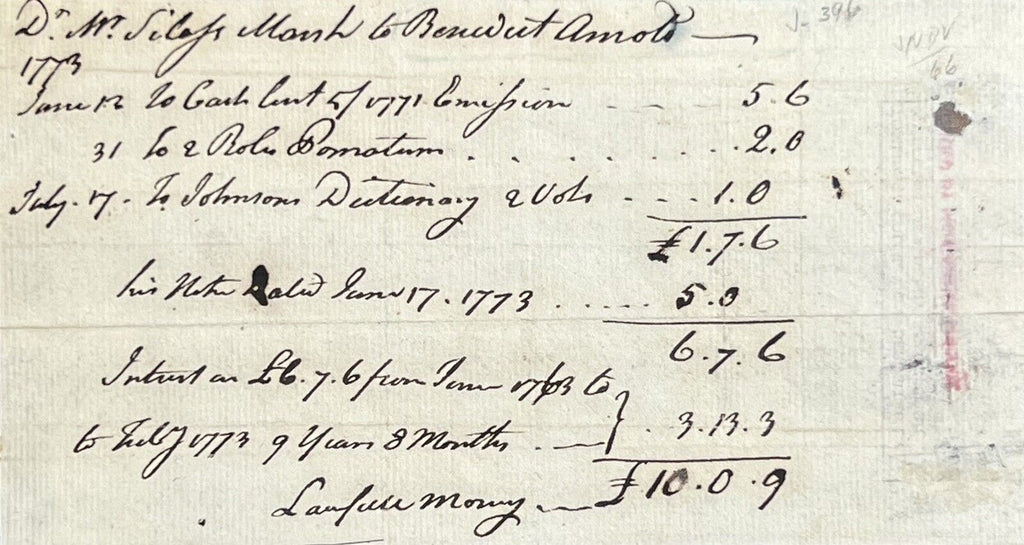 Dr. Mr. Silass Marsh to Benedict Arnold
1773
June 12 To Cash lent of 1771 Emission 5.6
31 To 2 Roles Pomatum 2.0
July. 17. To Johnsons Dictionary 2 Vols 1.0
£1.7.6
his Note Dated June 17. 1773 5.0
6.7.6
Interest on £6.7.6 from June 1763 to
to Feby 1773 9 Years 8 Months 3.13.3
£10.0.9
Lawfull Money
J- 396
66